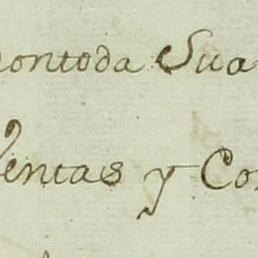 contoda Sua
Ventas y Co